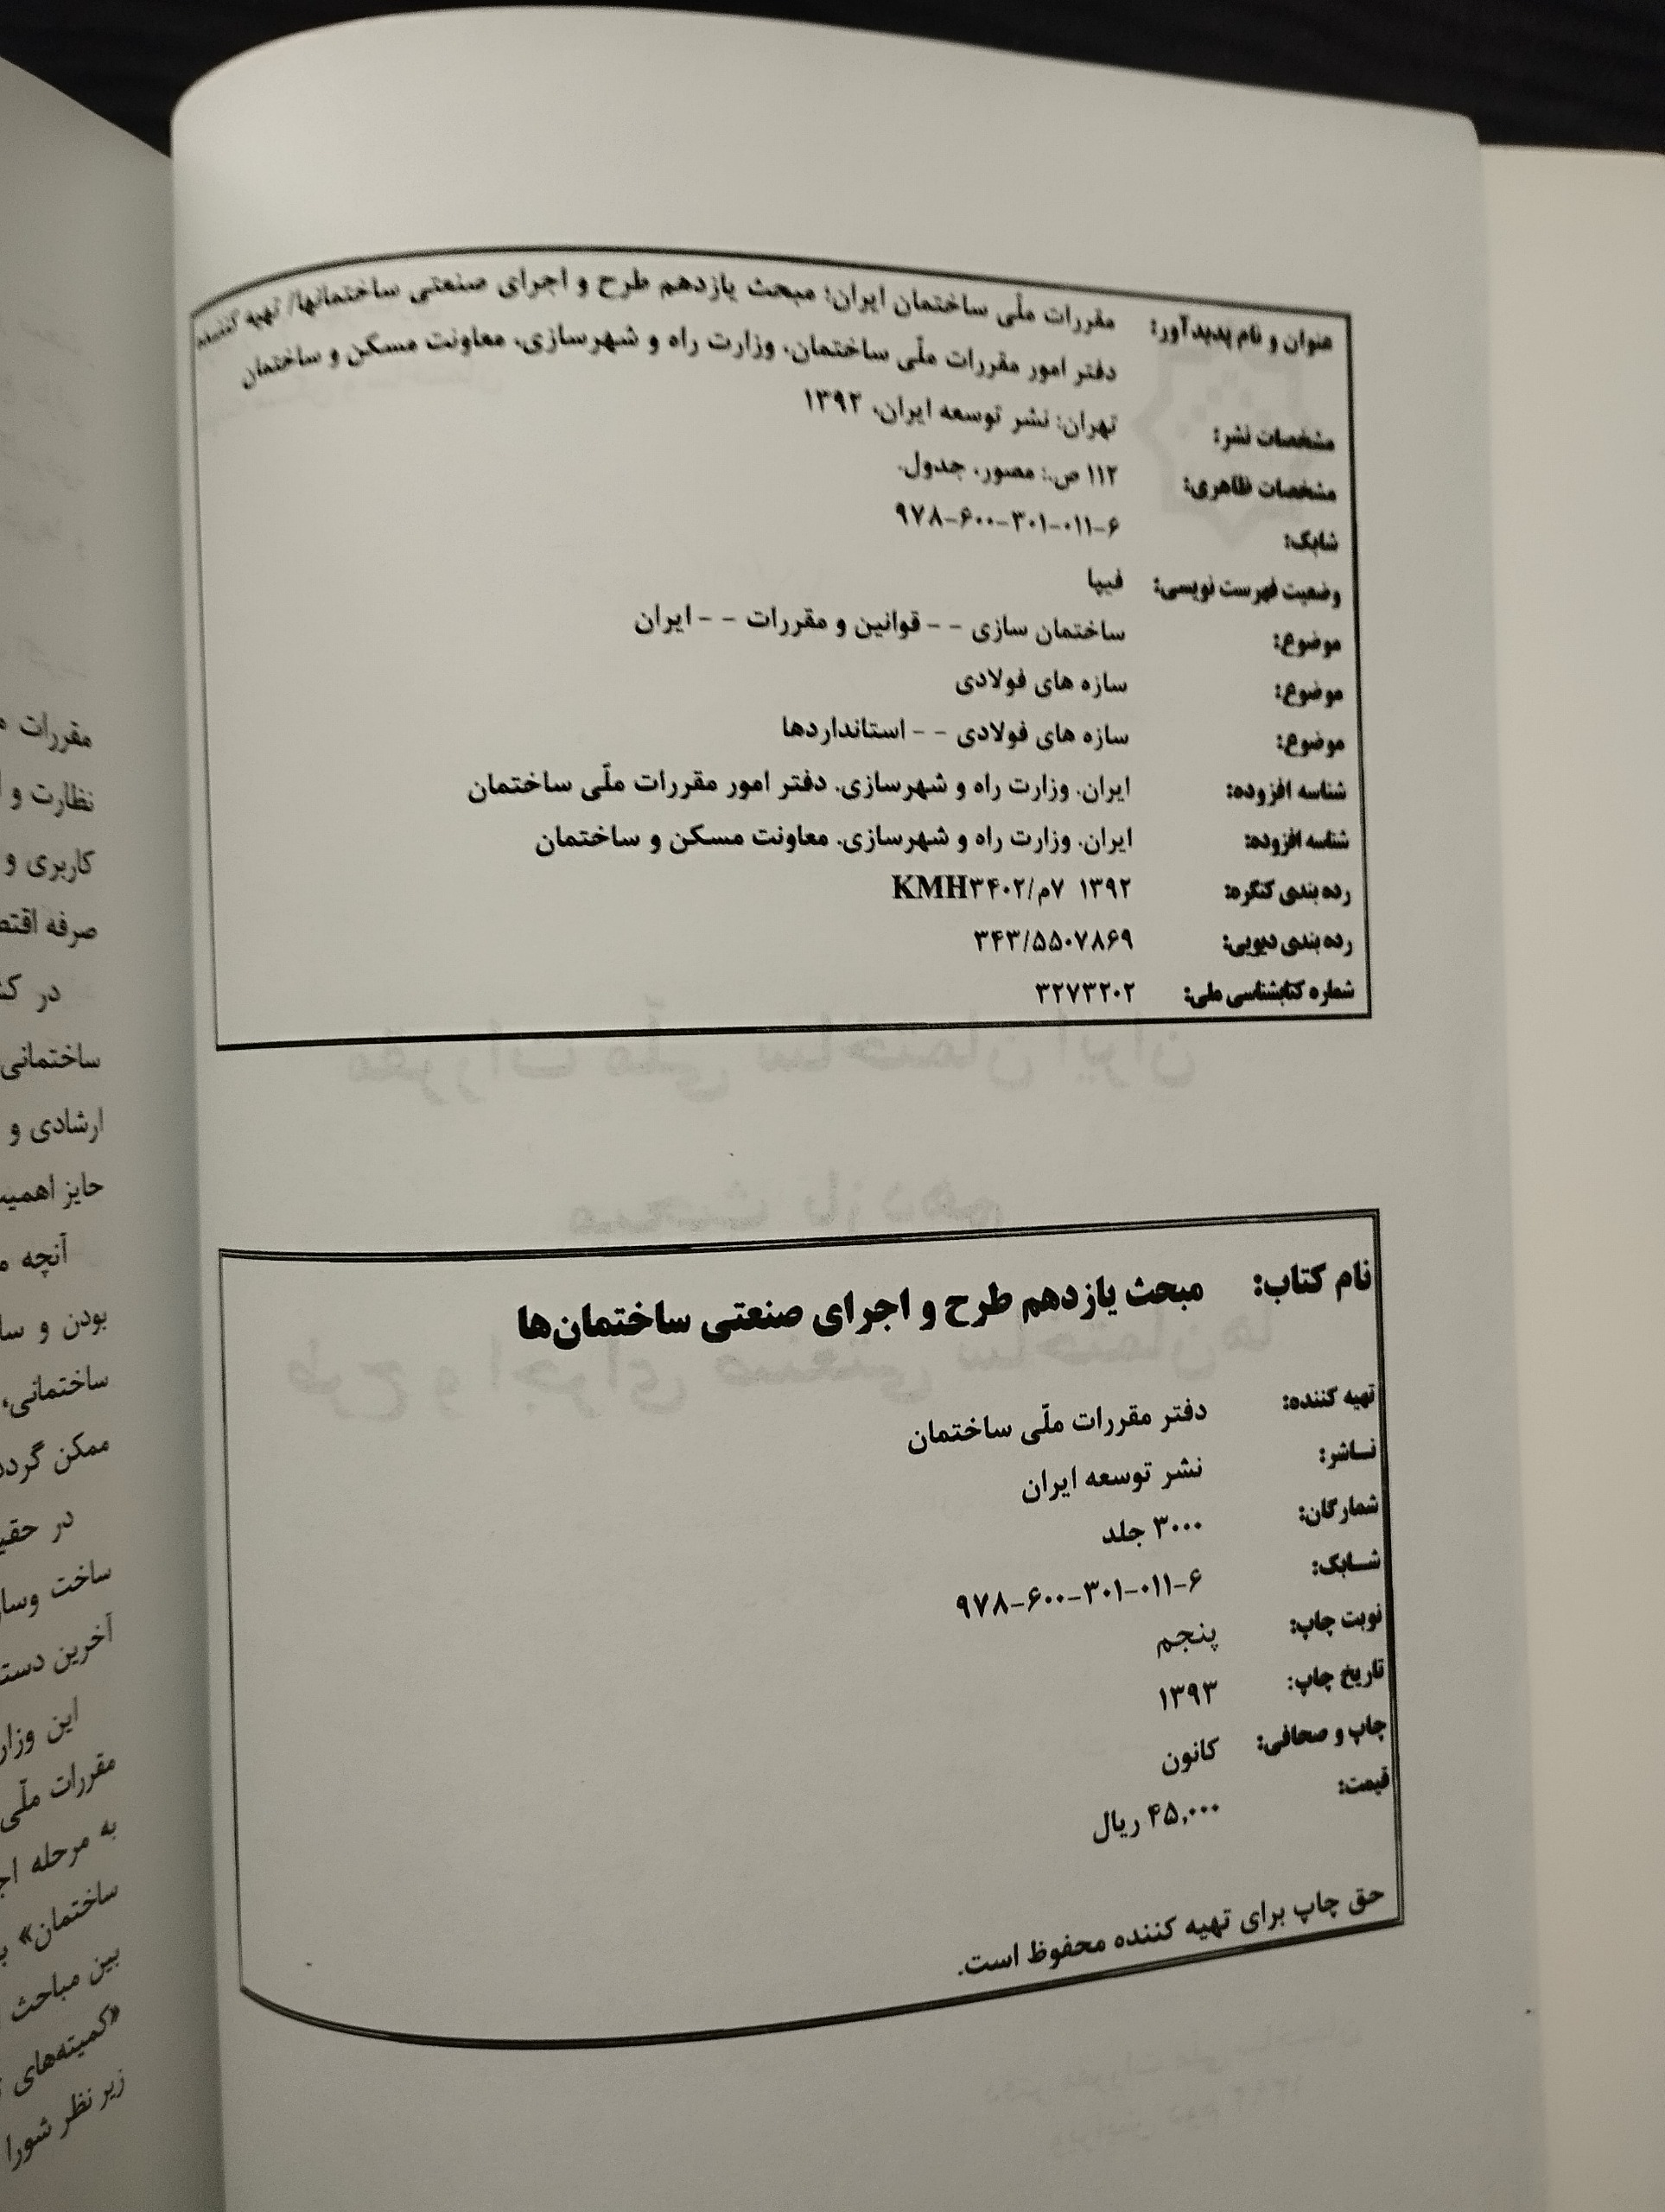 عنوان و نام پدیدآور: مقررات ملّی ساختمان ایران: مبحث یازدهم طرح و اجرای صنعتی ساختمانها/ تهیه کننده
دفتر امور مقررات ملّی ساختمان، وزارت راه و شهرسازی، معاونت مسکن و ساختمان
مشخصات نشر: تهران: نشر توسعه ایران، ۱۳۹۲
مشخصات ظاهری: ۱۱۲ ص.: مصور، جدول.
شابک: ۹۷۸-۶۰۰-۳۰۱-۰۱۱-۶
وضعیت فهرست نویسی: فیپا
موضوع: ساختمان سازی - - قوانین و مقررات - - ایران
موضوع: سازه های فولادی
موضوع: سازه های فولادی - - استانداردها
شناسه افزوده: ایران. وزارت راه و شهرسازی. دفتر امور مقررات ملّی ساختمان
شناسه افزوده: ایران. وزارت راه و شهرسازی. معاونت مسکن و ساختمان
رده بندی کنگره: ۱۳۹۲ ۷م/KMH۳۴۰۲
رده بندی دیویی: ۳۴۳/۵۵۰۷۸۶۹
شماره کتابشناسی ملی: ۳۲۷۳۲۰۲
نام کتاب: مبحث یازدهم طرح و اجرای صنعتی ساختمان‌ها
تهیه کننده: دفتر مقررات ملّی ساختمان
ناشر: نشر توسعه ایران
شمارگان: ۳۰۰۰ جلد
شابک: ۹۷۸-۶۰۰-۳۰۱-۰۱۱-۶
نوبت چاپ: پنجم
تاریخ چاپ: ۱۳۹۳
چاپ و صحافی: کانون
قیمت: ۴۵,۰۰۰ ریال
حق چاپ برای تهیه کننده محفوظ است.
مقررات
نظارت و
کاربری و
صرفه
در
ساختمانی
ارشادی و
حایز
آنچه
بودن و
ساختمانی،
ممکن
در
ساخت
آخرین
این
مقررات ملّی
به مرحله
ساختمان»
بین مباحث
«کمیته‌های
زیر نظر شورا